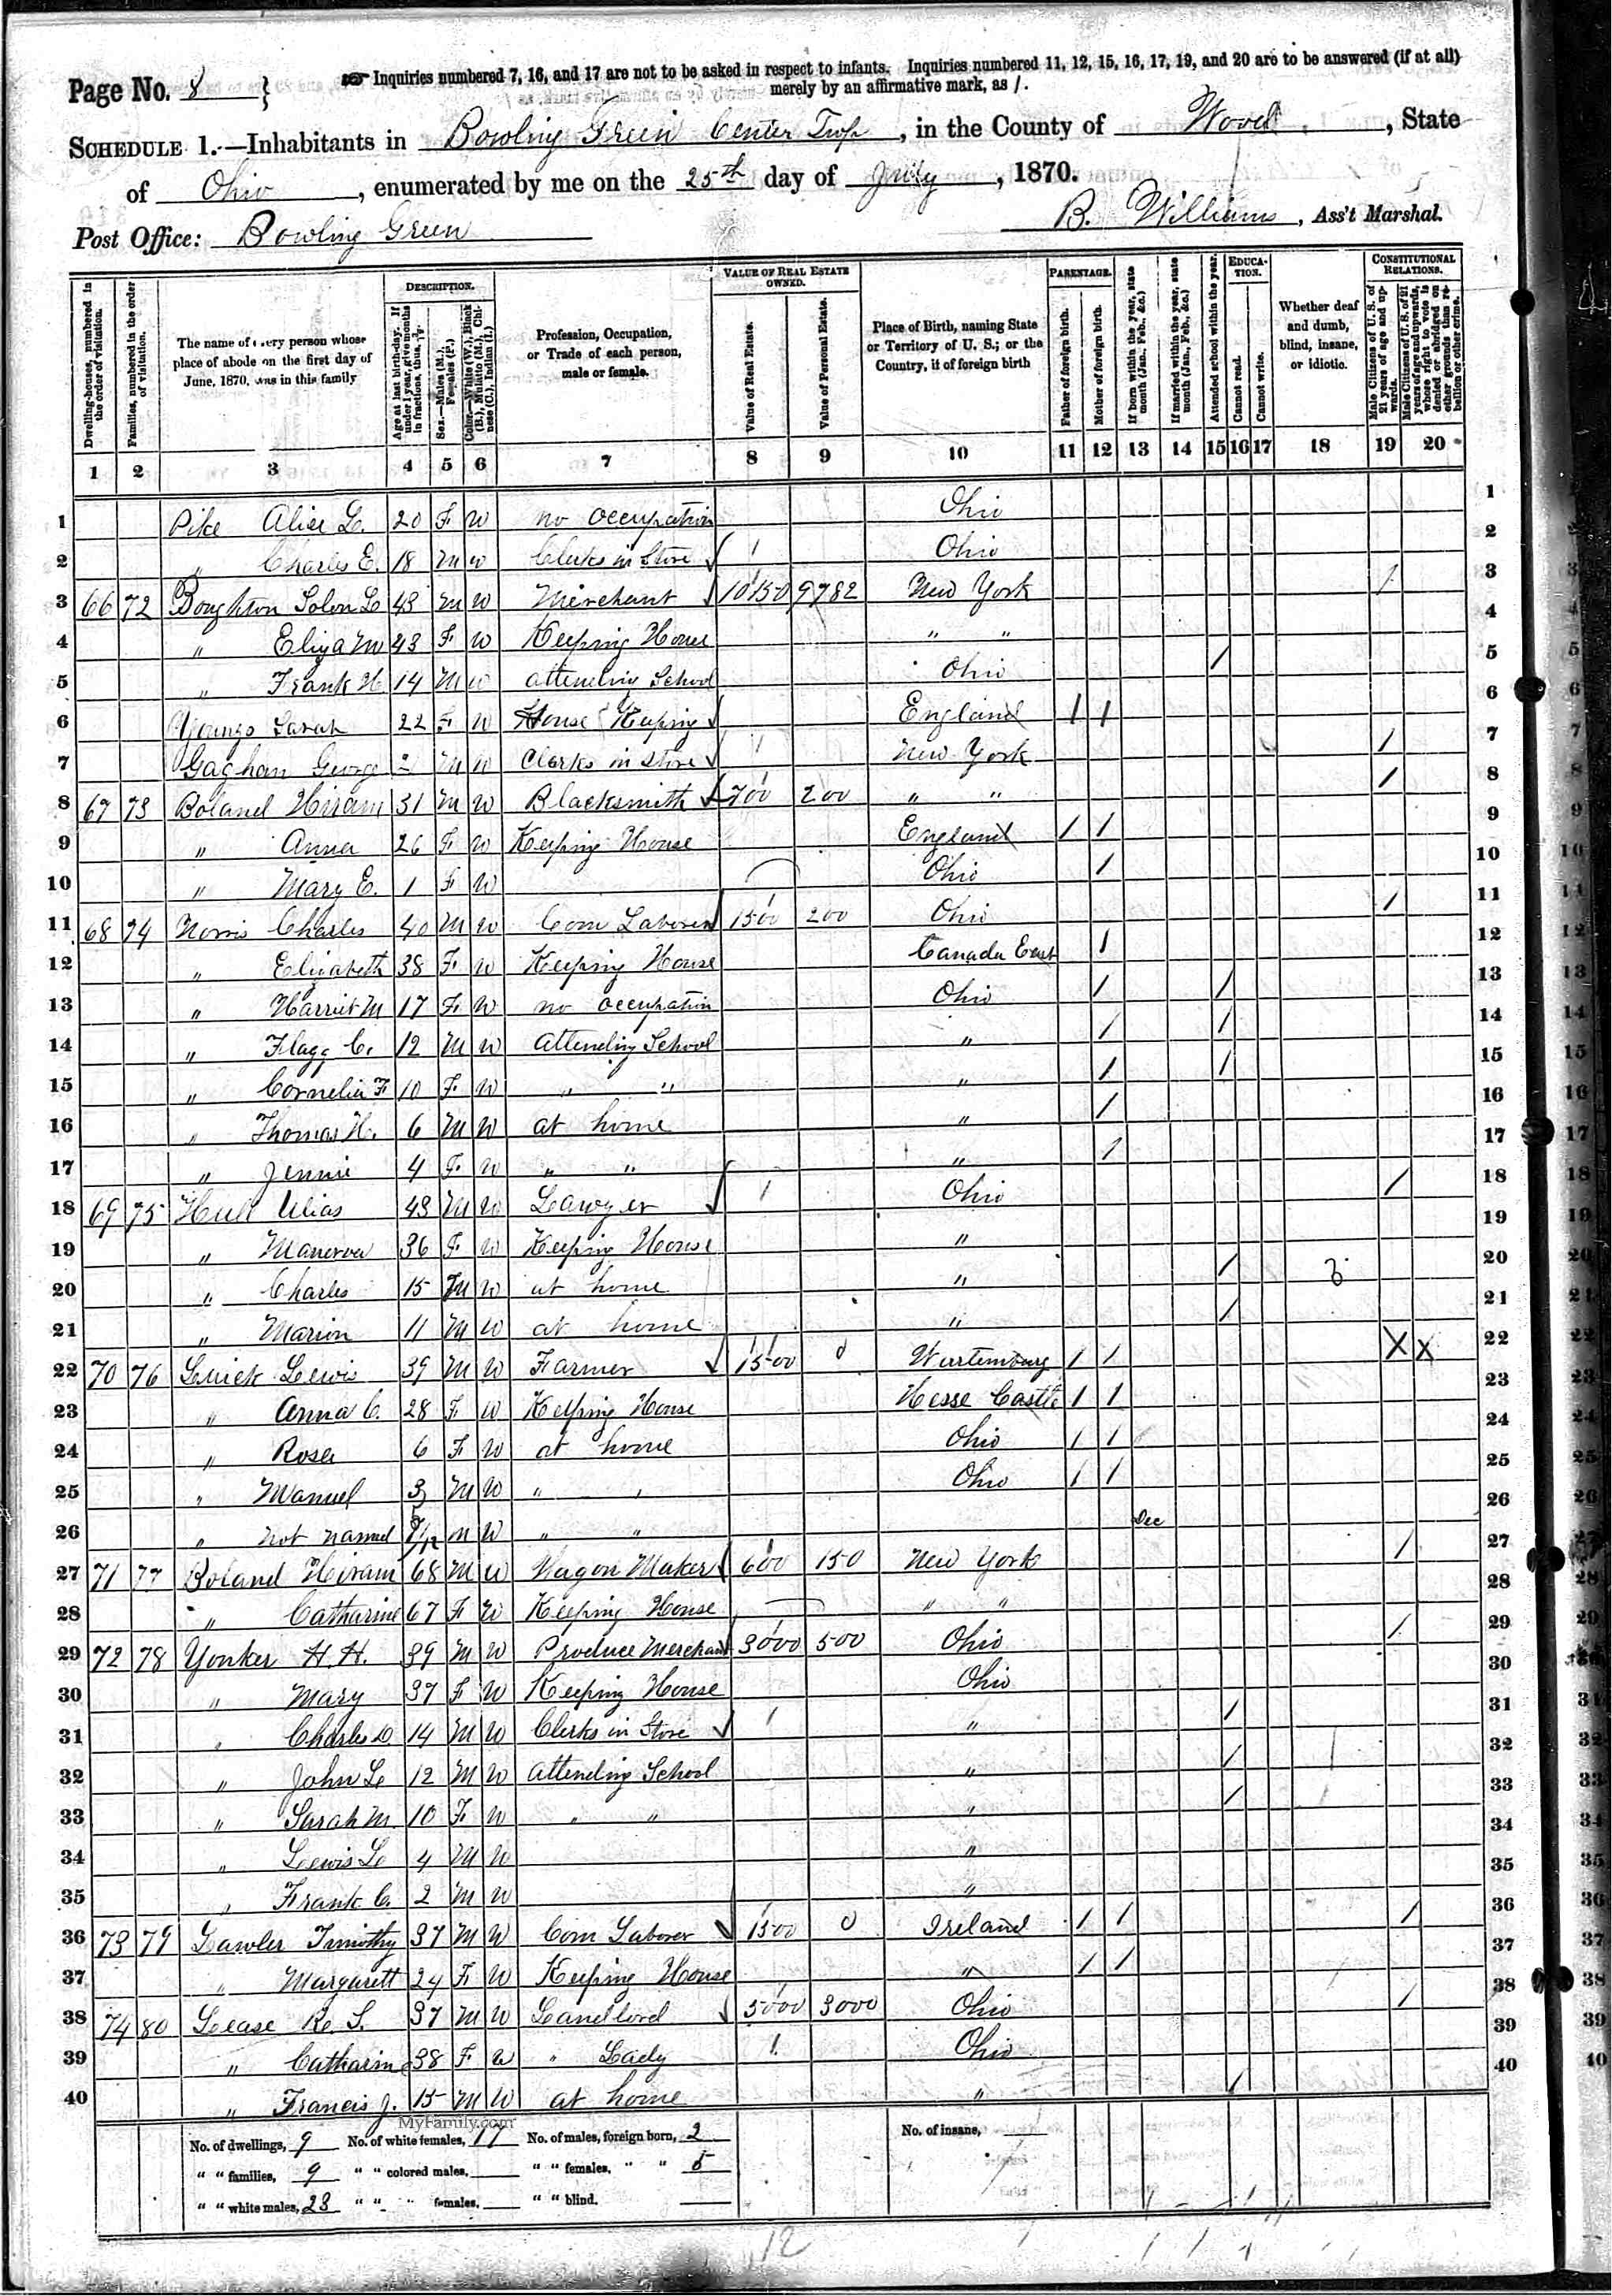 Page No. 8 } Inquiries numbered 7, 16, and 17 are not to be asked in respect to infants. Inquiries numbered 11, 12, 15, 16, 17, 19, and 20 are to be answered (if at all)
merely by an affirmative mark, as /.
SCHEDULE 1.—Inhabitants in Bowling Green Center Twp, in the County of Wood, State
of Ohio, enumerated by me on the 25th day of July, 1870.
Post Office: Bowling Green B. Williams, Ass't Marshal.
Dwelling-houses, numbered in the order of visitation.
Families, numbered in the order of visitation.
The name of every person whose place of abode on the first day of June, 1870, was in this family
DESCRIPTION.
Age at last birth-day. If under 1 year, give months in fractions, thus,
Sex.—Males (M.), Females (F.)
Color.—White (W.), Black (B.), Mulatto (M.), Chinese (C.), Indian (I.)
Profession, Occupation, or Trade of each person, male or female.
VALUE OF REAL ESTATE OWNED.
Value of Real Estate.
Value of Personal Estate.
Place of Birth, naming State or Territory of U. S.; or the Country, if of foreign birth
PARENTAGE.
Father of foreign birth.
Mother of foreign birth.
If born within the year, state month (Jan., Feb., &c.)
If married within the year, state month (Jan., Feb., &c.)
Attended school within the year.
EDUCATION.
Cannot read.
Cannot write.
Whether deaf and dumb, blind, insane, or idiotic.
CONSTITUTIONAL RELATIONS.
Male Citizens of U. S. of 21 years of age and upwards.
Male Citizens of U. S. of 21 years of age and upwards, whose right to vote is denied or abridged on other grounds than rebellion or other crime.
1 2 3 4 5 6 7 8 9 10 11 12 13 14 15 16 17 18 19 20
1 Pike Alice L. 20 F W no occupation Ohio 1
2 " Charles E. 18 M W Clerks in Store / Ohio 2
3 66 72 Boughton Solon L 43 M W Merchant 10150 9782 New York / 3
4 " Eliza M 43 F W Keeping House " " 4
5 " Frank H 14 M W attending School Ohio / 5
6 Youngs Sarah 22 F W House Keeping England / / 6
7 Gaghan George M W Clerks in Store / New York / 7
8 67 73 Boland Hiram 31 M W Blacksmith 700 200 " " / 8
9 " Anna 26 F W Keeping House England / / 9
10 " Mary E. 1 F W Ohio / 10
11 68 74 Norris Charles 40 M W Com Laborer 1500 200 Ohio / 11
12 " Elizabeth 38 F W Keeping House Canada East / 12
13 " Harriet M 17 F W no occupation Ohio / / 13
14 " Flagg C. 12 M W Attending School " / / 14
15 " Cornelia F 10 F W " " " / / 15
16 " Thomas H. 6 M W at home " / 16
17 " Jennie 4 F W " " " / 17
18 69 75 Hull Ulias 43 M W Lawyer / Ohio / 18
19 " Manerva 36 F W Keeping House " 19
20 " Charles 15 M W at home " / 20
21 " Marion 11 M W at home " / 21
22 70 76 Luick Lewis 39 M W Farmer 1500 0 Wurtemburg / / X X 22
23 " Anna C. 28 F W Keeping House Hesse Castle / / 23
24 " Rosa 6 F W at home Ohio / / 24
25 " Manuel 3 M W " " Ohio / / 25
26 " not named M W " " Dec 26
27 71 77 Boland Hiram 68 M W Wagon Maker 600 150 New York / 27
28 " Catharine 67 F W Keeping House " " 28
29 72 78 Yonker H. H. 39 M W Produce Merchant 3000 500 Ohio / 29
30 " Mary 37 F W Keeping House Ohio 30
31 " Charles D 14 M W Clerks in Store / " / 31
32 " John L 12 M W attending School " / 32
33 " Sarah M. 10 F W " " " / 33
34 " Lewis L 4 M W " 34
35 " Frank C. 2 M W " 35
36 73 79 Lawler Timothy 37 M W Com Laborer 1500 0 Ireland / / / 36
37 " Margarett 24 F W Keeping House " / / 37
38 74 80 Lease R. S. 37 M W Landlord 5000 3000 Ohio / 38
39 " Catharin 38 F W " Lady 1 Ohio 39
40 " Francis J. 15 M W at home " / 40
MyFamily.com
No. of dwellings, 9 No. of white females, 17 No. of males, foreign born, 2 No. of insane,
" " families, 9 " " colored males, " " females, " " 5
" " white males, 23 " " " females, " " blind.
12